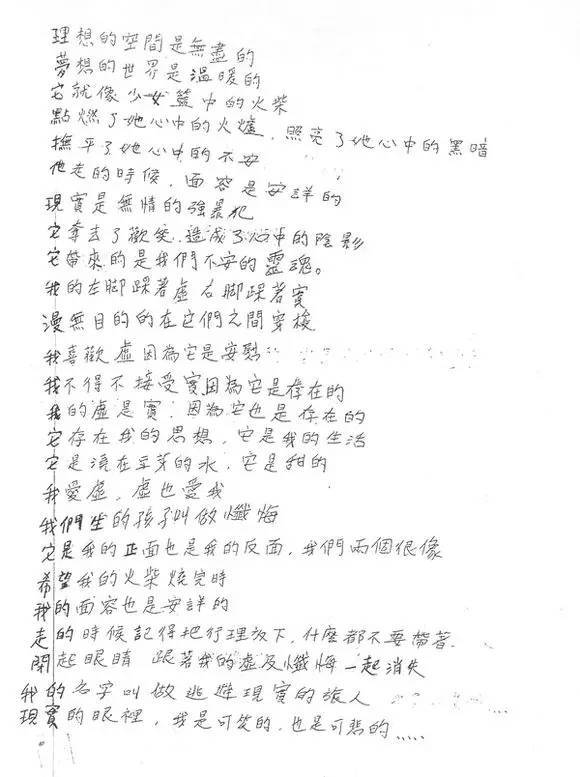 理想的空間是無盡的
夢想的世界是溫暖的
它就像少女籃中的火柴
點燃了她心中的火爐，照亮了她心中的黑暗
撫平了她心中的不安
他走的時候，面容是安詳的
現實是無情的強暴犯
它奪去了歡笑，造成了心中的陰影
它帶來的是我們不安的靈魂。
我的左腳踩著虛 右腳踩著實
漫無目的的在它們之間穿梭
我喜歡虛因為它是安
我不得不接受實因為它是存在的
我的虛是實，因為它也是存在的
它存在我的思想，它是我的生活
它是澆在豆芽的水，它是甜的
我愛虛，虛也愛我
我們生的孩子叫做懺悔
它是我的正面也是我的反面，我們兩個很像
希望我的火柴燒完時
我的面容也是安詳的
走的時候記得把行理放下，什麼都不要帶著，
閉起眼睛 跟著我的虛及懺悔一起消失
我的名字叫做逃避現實的旅人
現實的眼裡，我是可笑的，也是可悲的.....